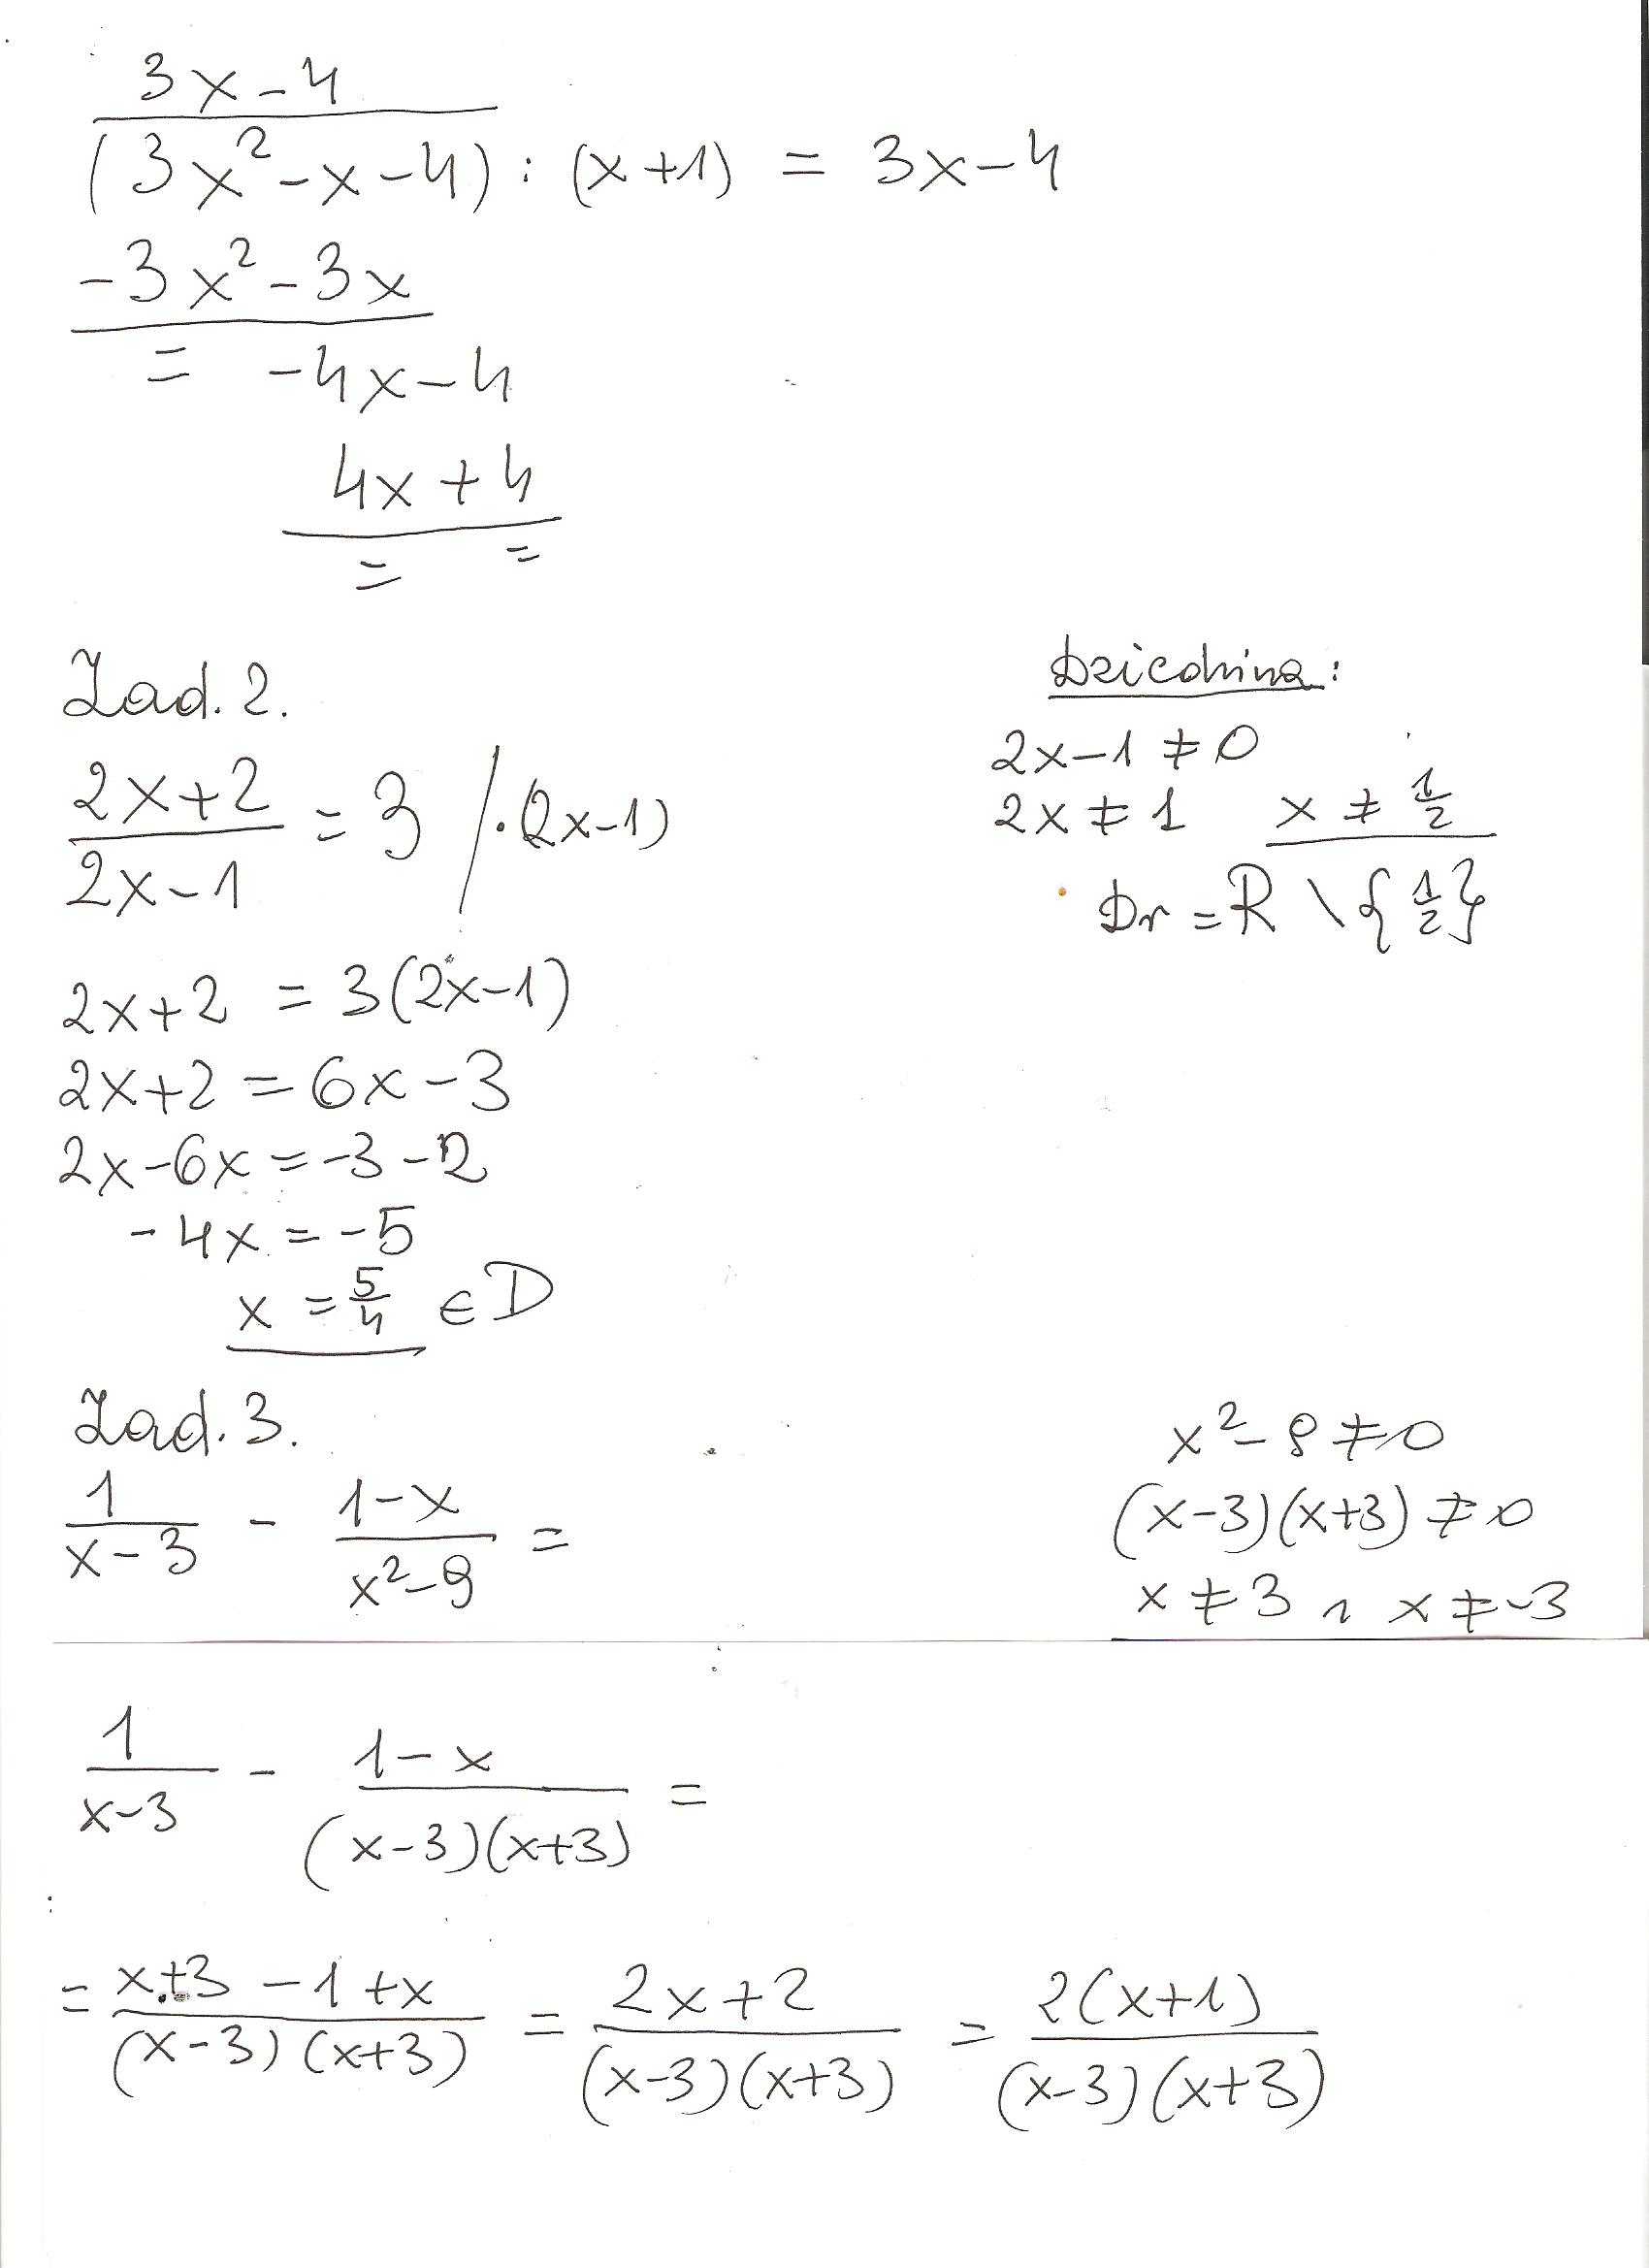 3x-4
(3x²-x-4) : (x+1) = 3x-4
-3x²-3x
= -4x-4
4x+4
= =
Zad. 2.
Dziedzina:
2x-1 ≠ 0
2x ≠ 1 x ≠ 1/2
Dr = R \ {1/2}
(2x+2)/(2x-1) = 3 / · (2x-1)
2x+2 = 3(2x-1)
2x+2 = 6x-3
2x-6x = -3-2
-4x = -5
x = 5/4 ∈ D
Zad. 3.
1/(x-3) - (1-x)/(x²-9) =
x²-9 ≠ 0
(x-3)(x+3) ≠ 0
x ≠ 3 ∧ x ≠ -3
1/(x-3) - (1-x)/((x-3)(x+3)) =
= (x+3-1+x)/((x-3)(x+3)) = (2x+2)/((x-3)(x+3)) = 2(x+1)/((x-3)(x+3))